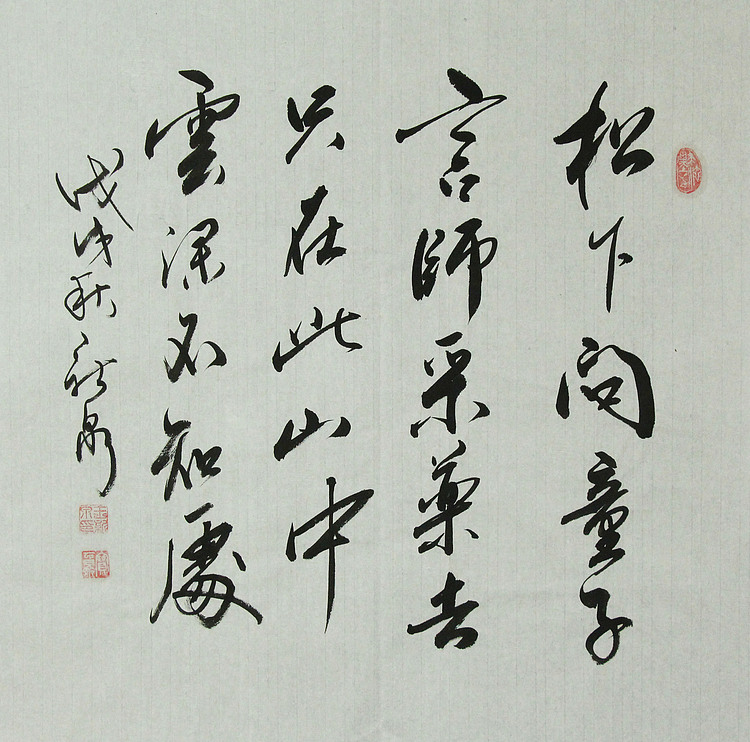 松下問童子
言師采藥去
只在此山中
雲深不知處
戊 秋